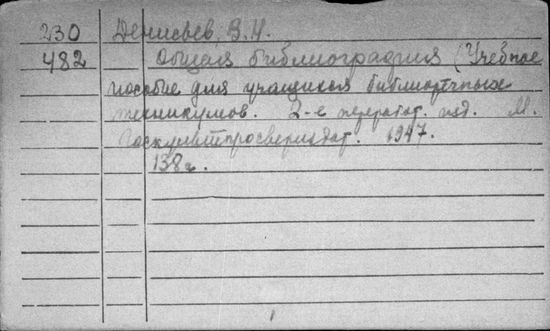 230 Денисьев, В.Н.
482 Общая библиография (Учебное
пособие для учащихся библиотечных
техникумов. 2-е перераб. изд. М.
Госкультпросветиздат. 1947.
138 с.